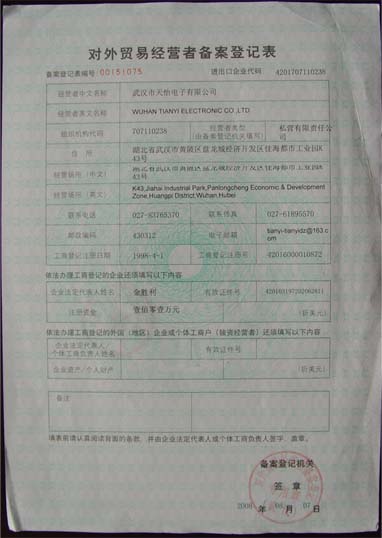 对外贸易经营者备案登记表
备案登记表编号 00151075 进出口企业代码 4201707110238
经营者中文名称 武汉市天怡电子有限公司
经营者英文名称 WUHAN TIANYI ELECTRONIC CO.,LTD.
组织机构代码 707110238 经营者类型 (由备案登记机关填写) 私营有限责任公司
住 所 湖北省武汉市黄陂区盘龙城经济开发区佳海都市工业园K43号
经营场所(中文) 湖北省武汉市黄陂区盘龙城经济开发区佳海都市工业园K43号
经营场所(英文) K43,Jiahai Industrial Park,Panlongcheng Economic & Development Zone,Huangpi District,Wuhan,Hubei
联系电话 027-83765370 联系传真 027-61895570
邮政编码 430312 电子邮箱 tianyi-tianyidz@163.com
工商登记注册日期 1998-4-1 工商登记注册号 42016000010872
依法办理工商登记的企业还须填写以下内容
企业法定代表人姓名 金胜利 有效证件号
注册资金 壹佰零壹万元 (折美元)
依法办理工商登记的外国(地区)企业或个体工商户(独资经营者)还须填写以下内容
企业法定代表人/个体工商负责人姓名 有效证件号
企业资产/个人财产 (折美元)
备注
填表前请认真阅读背面的条款,并由企业法定代表人或个体工商负责人签字、盖章。
备案登记机关
签 章
2008 年 月 07 日